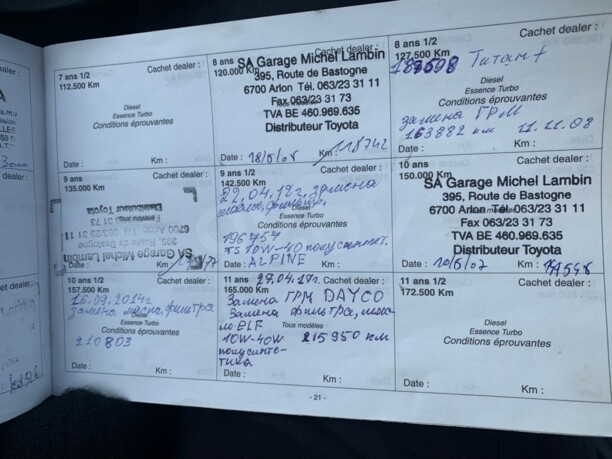 7 ans 1/2 Cachet dealer :
112.500 Km
Diesel
Essence Turbo
Conditions éprouvantes
Date : Km :
8 ans Cachet dealer :
120.000 Km
SA Garage Michel Lambin
395, Route de Bastogne
6700 Arlon Tél. 063/23 31 11
Fax 063/23 31 73
TVA BE 460.969.635
Distributeur Toyota
Date : Km : 118742
8 ans 1/2 Cachet dealer :
127.500 Km
Титан +
Diesel
Essence Turbo
Conditions éprouvantes
замена ГРМ
163882 км 11.11.08
Date : Km :
9 ans Cachet dealer :
135.000 Km
SA Garage Michel Lambin
395, Route de Bastogne
6700 Arlon Tél. 063/23 31 11
Distributeur Toyota
Date : Km :
9 ans 1/2 Cachet dealer :
142.500 Km
22.04.12г. замена
масла, фильтр.
196757
TS 10W-40 полусинтет.
ALPINE
Date : Km :
10 ans
150.000 Km
SA Garage Michel Lambin
395, Route de Bastogne
6700 Arlon Tél. 063/23 31 11
Fax 063/23 31 73
TVA BE 460.969.635
Distributeur Toyota
Date : 10/5/07 Km :
10 ans 1/2 Cachet dealer :
157.500 Km
16.09.2014г.
замена масла, фильтра
Diesel
Essence Turbo
Conditions éprouvantes
210803
Date : Km :
11 ans 27.04.17г. Cachet dealer :
165.000 Km
Замена ГРМ DAYCO
Замена фильтра, мас-
ло ELF
Tous modèles
10W-40W 215950 км
полусинте-
тика
Date : Km :
11 ans 1/2 Cachet dealer :
172.500 Km
Diesel
Essence Turbo
Conditions éprouvantes
Date : Km :
- 21 -